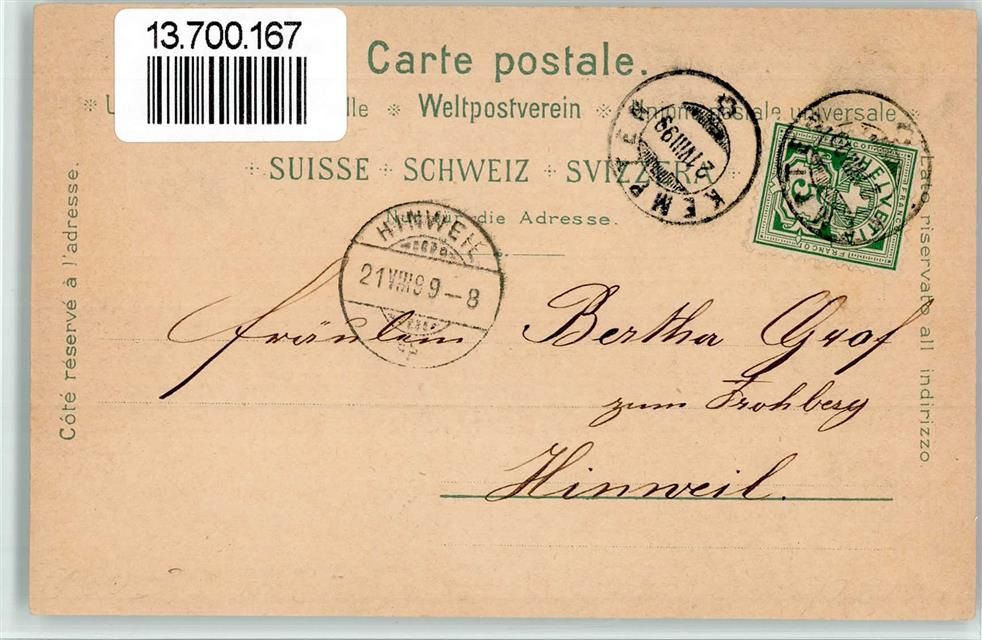 13.700.167
Carte postale.
Weltpostverein * Union postale universale *
* SUISSE * SCHWEIZ * SVIZZERA *
Nur für die Adresse.
KEMPTEN
21 VIII 99
HELVETIA
FRANCO
5
HINWEIL
21 VIII 99 – 8
Côté réservé à l'adresse.
Lato riservato all indirizzo.
Fräulein Bertha Graf
zum Frohberg
Hinweil.